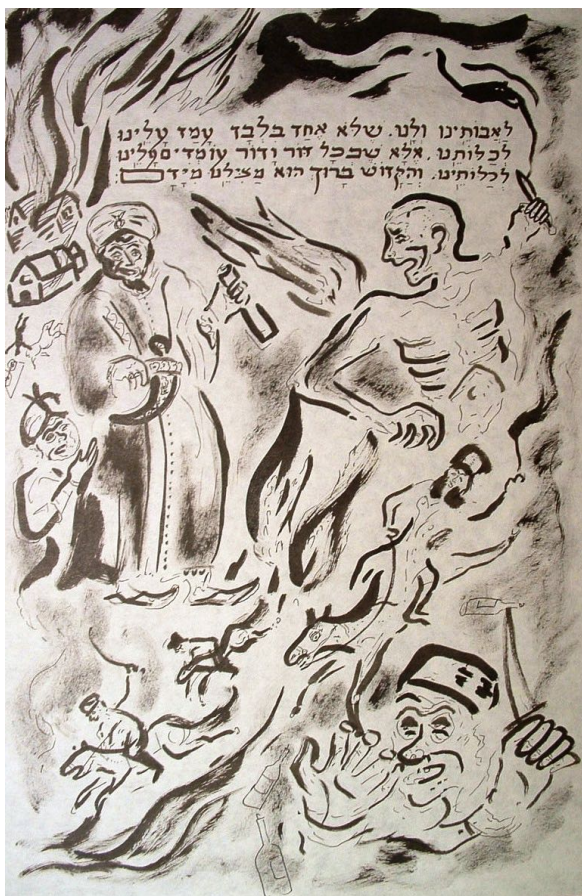 לאבותינו ולנו. שלא אחד בלבד עמד עלינו
לכלותנו. אלא שבכל דור ודור עומדים עלינו
לכלותינו. והקדוש ברוך הוא מצילנו מידם: